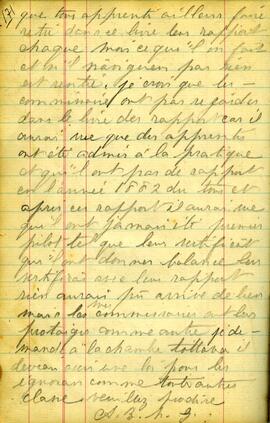 (7)
que tous apprenti ailleurs faire
retu dans ce livre leur rapport
chaque mois ce qu'il on fait
et s'il naviguent pas rien
est rentre. je crois que les
commissaire ont pas regarder
dans le livre des rapport car il
aurai vue que des apprentis
ont été admis à la pratique
et qu'il ont pas de rapport
en l'année 1882 du tout et
apres ces rapport il aurai vue
qu'il ont jamais été premier
pilote que leur certificit
qu'il ont donner balance leur
certificit avec leur rapport
rien aurai pu arrive de bien
mais les commissaires ont leur
protaiger comme autre je de-
mande à la chambre il
devrai avoir une loi pour les
ignoran comme tout autres
classe veuillez produire